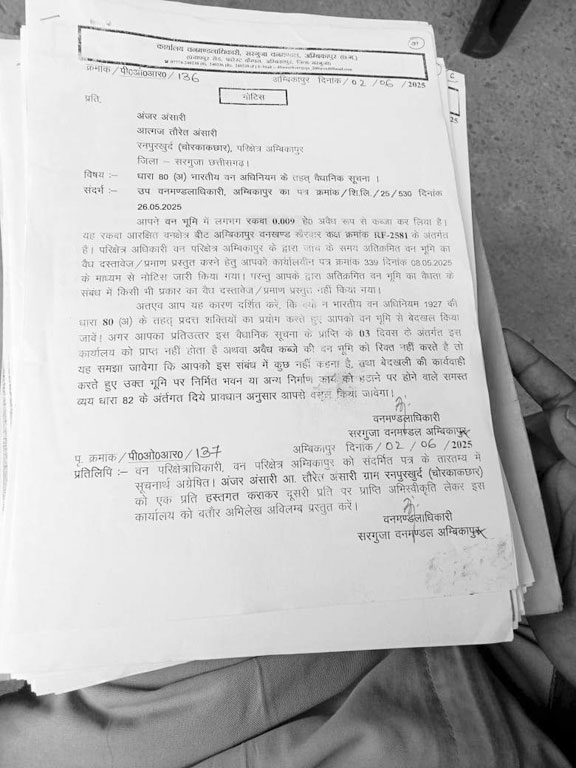 कार्यालय वनमण्डलाधिकारी, सरगुजा वनमण्डल, अम्बिकापुर (छ.ग.)
क्रमांक/पी०ओ०आर०/136 अम्बिकापुर दिनांक/02/06/2025
प्रति,
नोटिस
अंजर अंसारी
आत्मज तौरेत अंसारी
रनपुरखुर्द (चोरकाकछार), परिक्षेत्र अम्बिकापुर
जिला – सरगुजा छत्तीसगढ़।
विषय :– धारा 80 (अ) भारतीय वन अधिनियम के तहत् वैधानिक सूचना ।
संदर्भ :– उप वनमण्डलाधिकारी, अम्बिकापुर का पत्र क्रमांक/शि.लि./25/530 दिनांक
26.05.2025
आपने वन भूमि में लगभग रकबा 0.009 हे० अवैध रूप से कब्जा कर लिया है।
यह रकबा आरक्षित वनक्षेत्र बीट अम्बिकापुर वनखण्ड खैरबार कक्ष क्रमांक RF-2581 के अंतर्गत
है। परिक्षेत्र अधिकारी वन परिक्षेत्र अम्बिकापुर के द्वारा जांच के समय अतिक्रमित वन भूमि का
वैध दस्तावेज/प्रमाण प्रस्तुत करने हेतु आपको कार्यालयीन पत्र क्रमांक 339 दिनांक 08.05.2025
के माध्यम से नोटिस जारी किया गया। परन्तु आपके द्वारा अतिक्रमित वन भूमि का वैधता के
संबंध में किसी भी प्रकार का वैध दस्तावेज/प्रमाण प्रस्तुत नहीं किया गया।
अतएव आप यह कारण दर्शित करें, कि क्यों न भारतीय वन अधिनियम 1927 की
धारा 80 (अ) के तहत् प्रदत्त शक्तियों का प्रयोग करते हुए आपको वन भूमि से बेदखल किया
जावे। अगर आपका प्रतिउत्तर इस वैधानिक सूचना के प्राप्ति के 03 दिवस के अंतर्गत इस
कार्यालय को प्राप्त नहीं होता है अथवा अवैध कब्जे की वन भूमि को रिक्त नहीं करते है तो
यह समझा जावेगा कि आपको इस संबंध में कुछ नहीं कहना है, तथा बेदखली की कार्यवाही
करते हुए उक्त भूमि पर निर्मित भवन या अन्य निर्माण कार्य को हटाने पर होने वाले समस्त
व्यय धारा 82 के अंर्तगत दिये प्रावधान अनुसार आपसे वसूल किया जावेगा।
वनमण्डलाधिकारी
सरगुजा वनमण्डल अम्बिकापुर
पृ. क्रमांक/पी०ओ०आर०/137 अम्बिकापुर दिनांक/02/06/2025
प्रतिलिपि :– वन परिक्षेत्राधिकारी, वन परिक्षेत्र अम्बिकापुर को संदर्भित पत्र के तारतम्य में
सूचनार्थ अग्रेषित। अंजर अंसारी आ. तौरेत अंसारी ग्राम रनपुरखुर्द (चोरकाकछार)
को एक प्रति हस्तगत कराकर दूसरी प्रति पर प्राप्ति अभिस्वीकृति लेकर इस
कार्यालय को बतौर अभिलेख अविलम्ब प्रस्तुत करें।
वनमण्डलाधिकारी
सरगुजा वनमण्डल अम्बिकापुर